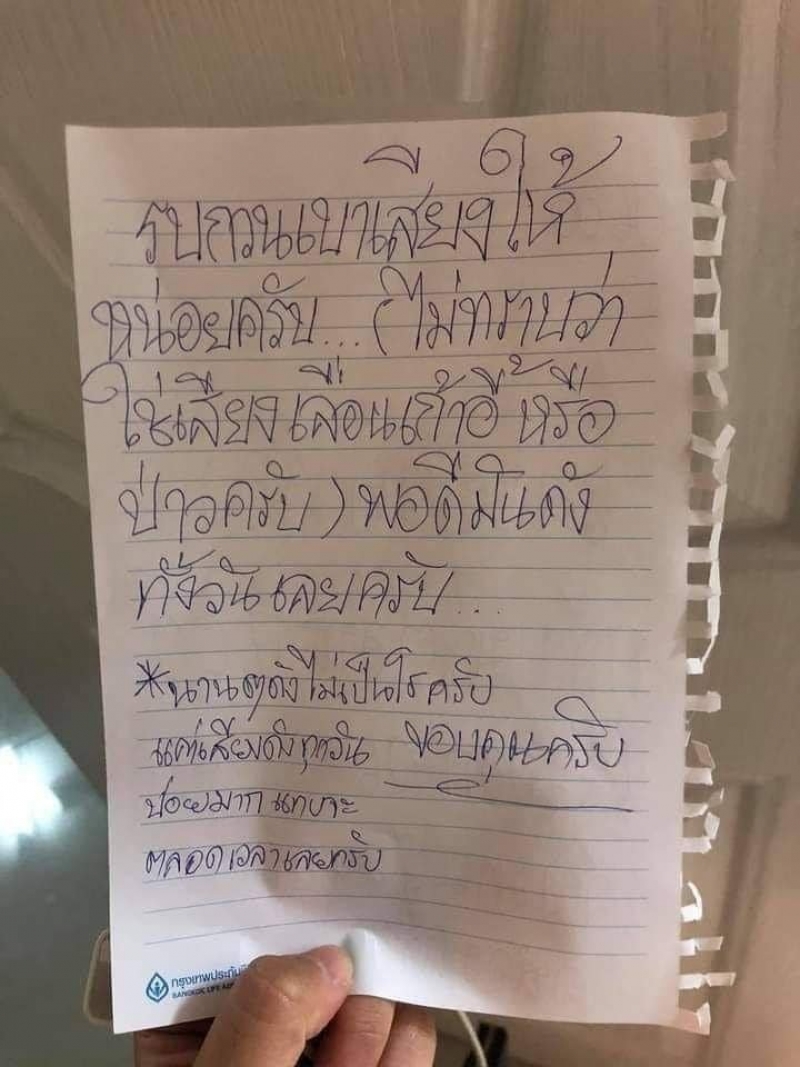 รบกวนเบาเสียงให้
หน่อยครับ...(ไม่ทราบว่า
ใช่เสียงเลื่อนเก้าอี้ หรือ
ป่าวครับ) พอดีมันดัง
ทั้งวันเลยครับ...
*นานๆดังไม่เป็นไรครับ
แต่เสียงดังทุกวัน ขอบคุณครับ
บ่อยมาก แทบจะ
ตลอดเวลาเลยครับ
กรุงเทพประกัน
BANGKOK LIFE